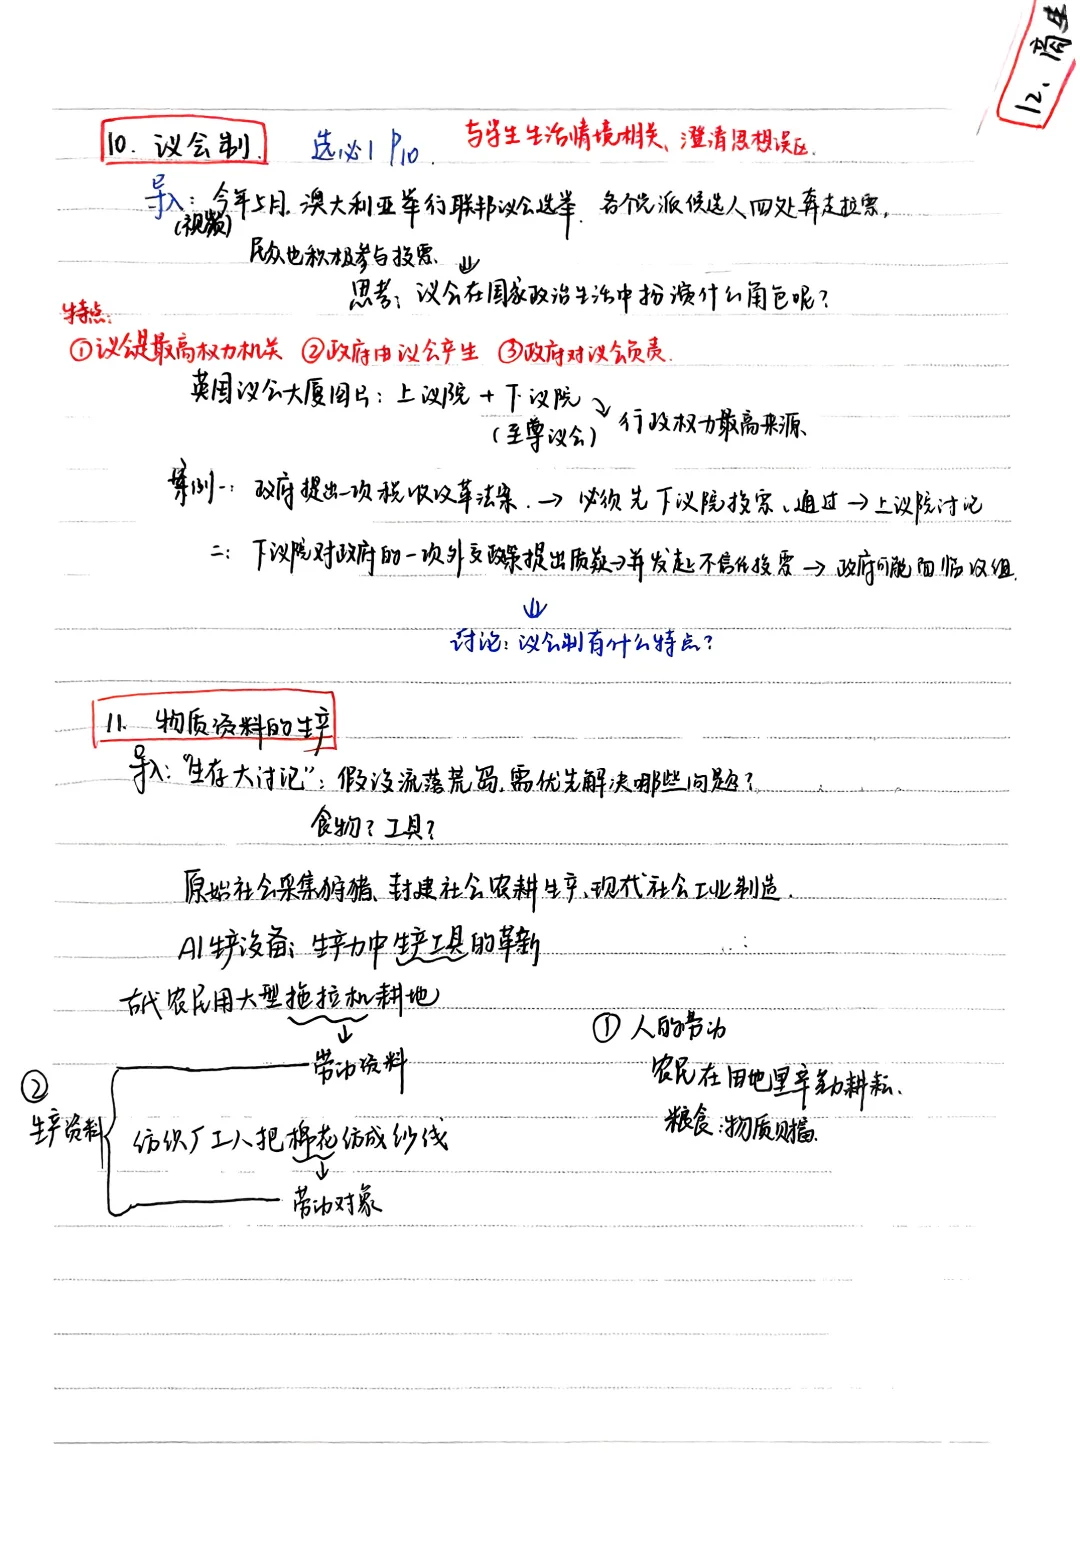 12、商
10. 议会制. 选必1 P10. 与学生生活情境相关、澄清思想误区.
导入: 今年5月, 澳大利亚举行联邦议会选举, 各个党派候选人四处奔走拉票,
(视频)
民众也积极参与投票.
⇓
思考: 议会在国家政治生活中扮演什么角色呢?
特点:
①议会是最高权力机关 ②政府由议会产生 ③政府对议会负责.
英国议会大厦图片: 上议院 + 下议院
(至尊议会) 行政权力最高来源.
案例一: 政府提出一项税收改革法案. → 必须先下议院投票、通过 → 上议院讨论
二: 下议院对政府的一项外交政策提出质疑→并发起不信任投票 → 政府可能面临改组.
⇓
讨论: 议会制有什么特点?
11. 物质资料的生产
导入: “生存大讨论”: 假设流落荒岛, 需优先解决哪些问题?
食物? 工具?
原始社会采集狩猎、封建社会农耕生产、现代社会工业制造.
AI生产设备: 生产力中生产工具的革新
古代农民用大型拖拉机耕地
↓
劳动资料
② 生产资料
纺织厂工人把棉花纺成纱线
↓
劳动对象
① 人的劳动
农民在田地里辛勤耕耘.
粮食: 物质财富.